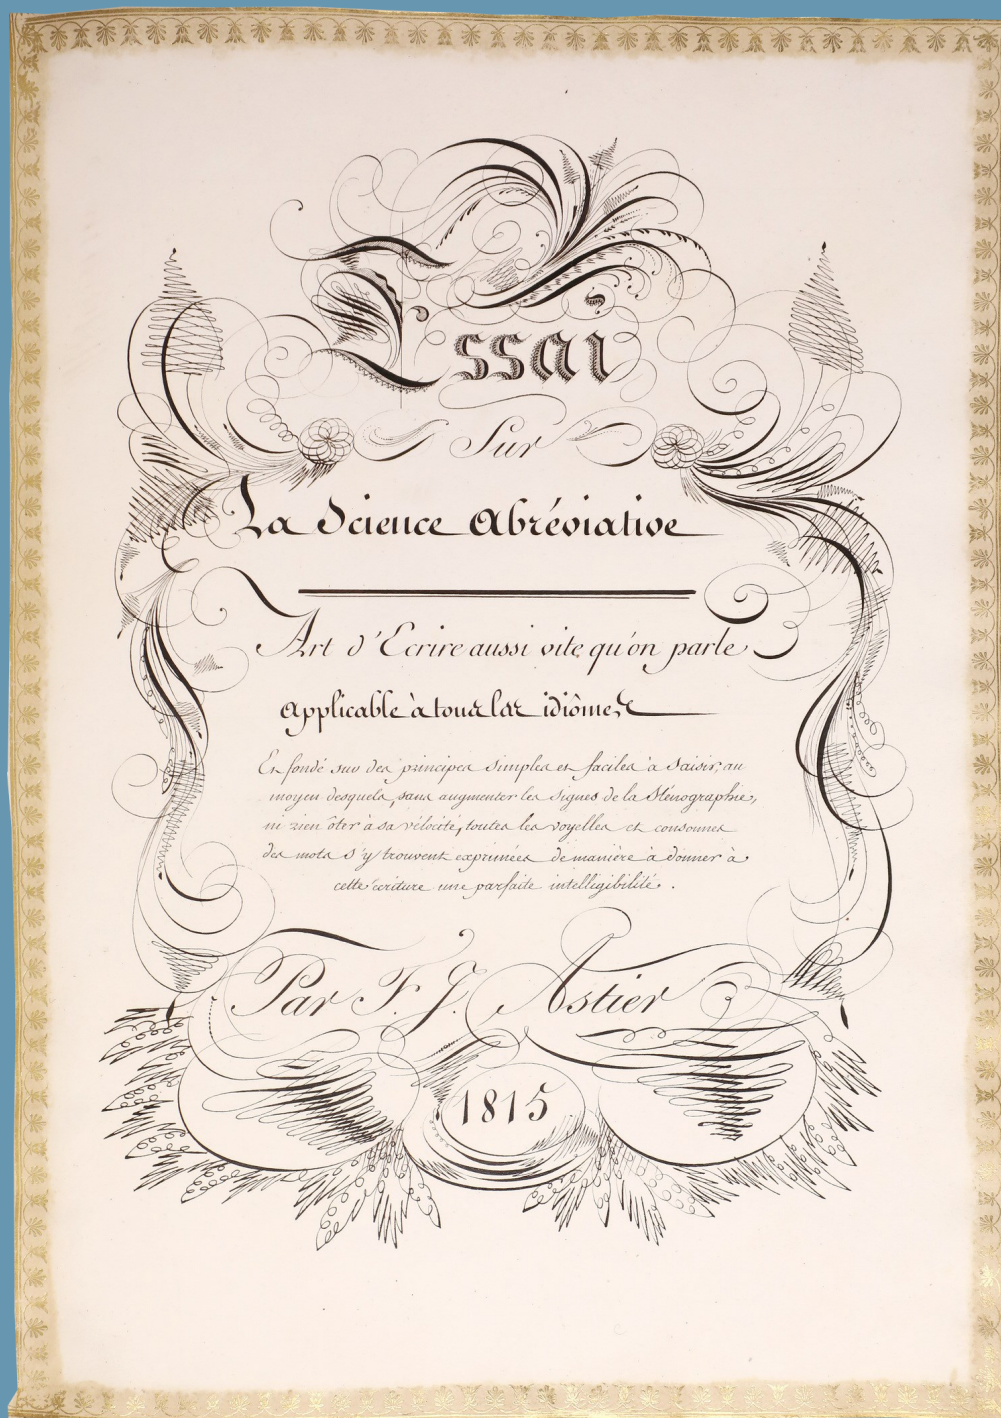 Essai
Sur
La Science Abréviative
Art d'Ecrire aussi vite qu'on parle
applicable à tous les idiômes
Et fondé sur des principes simples et faciles à saisir, au
moyen desquels, sans augmenter les signes de la Sténographie,
ni rien ôter à sa vélocité, toutes les voyelles et consonnes
des mots s'y trouvent exprimées de manière à donner à
cette écriture une parfaite intelligibilité.
Par F. J. Astier
1815